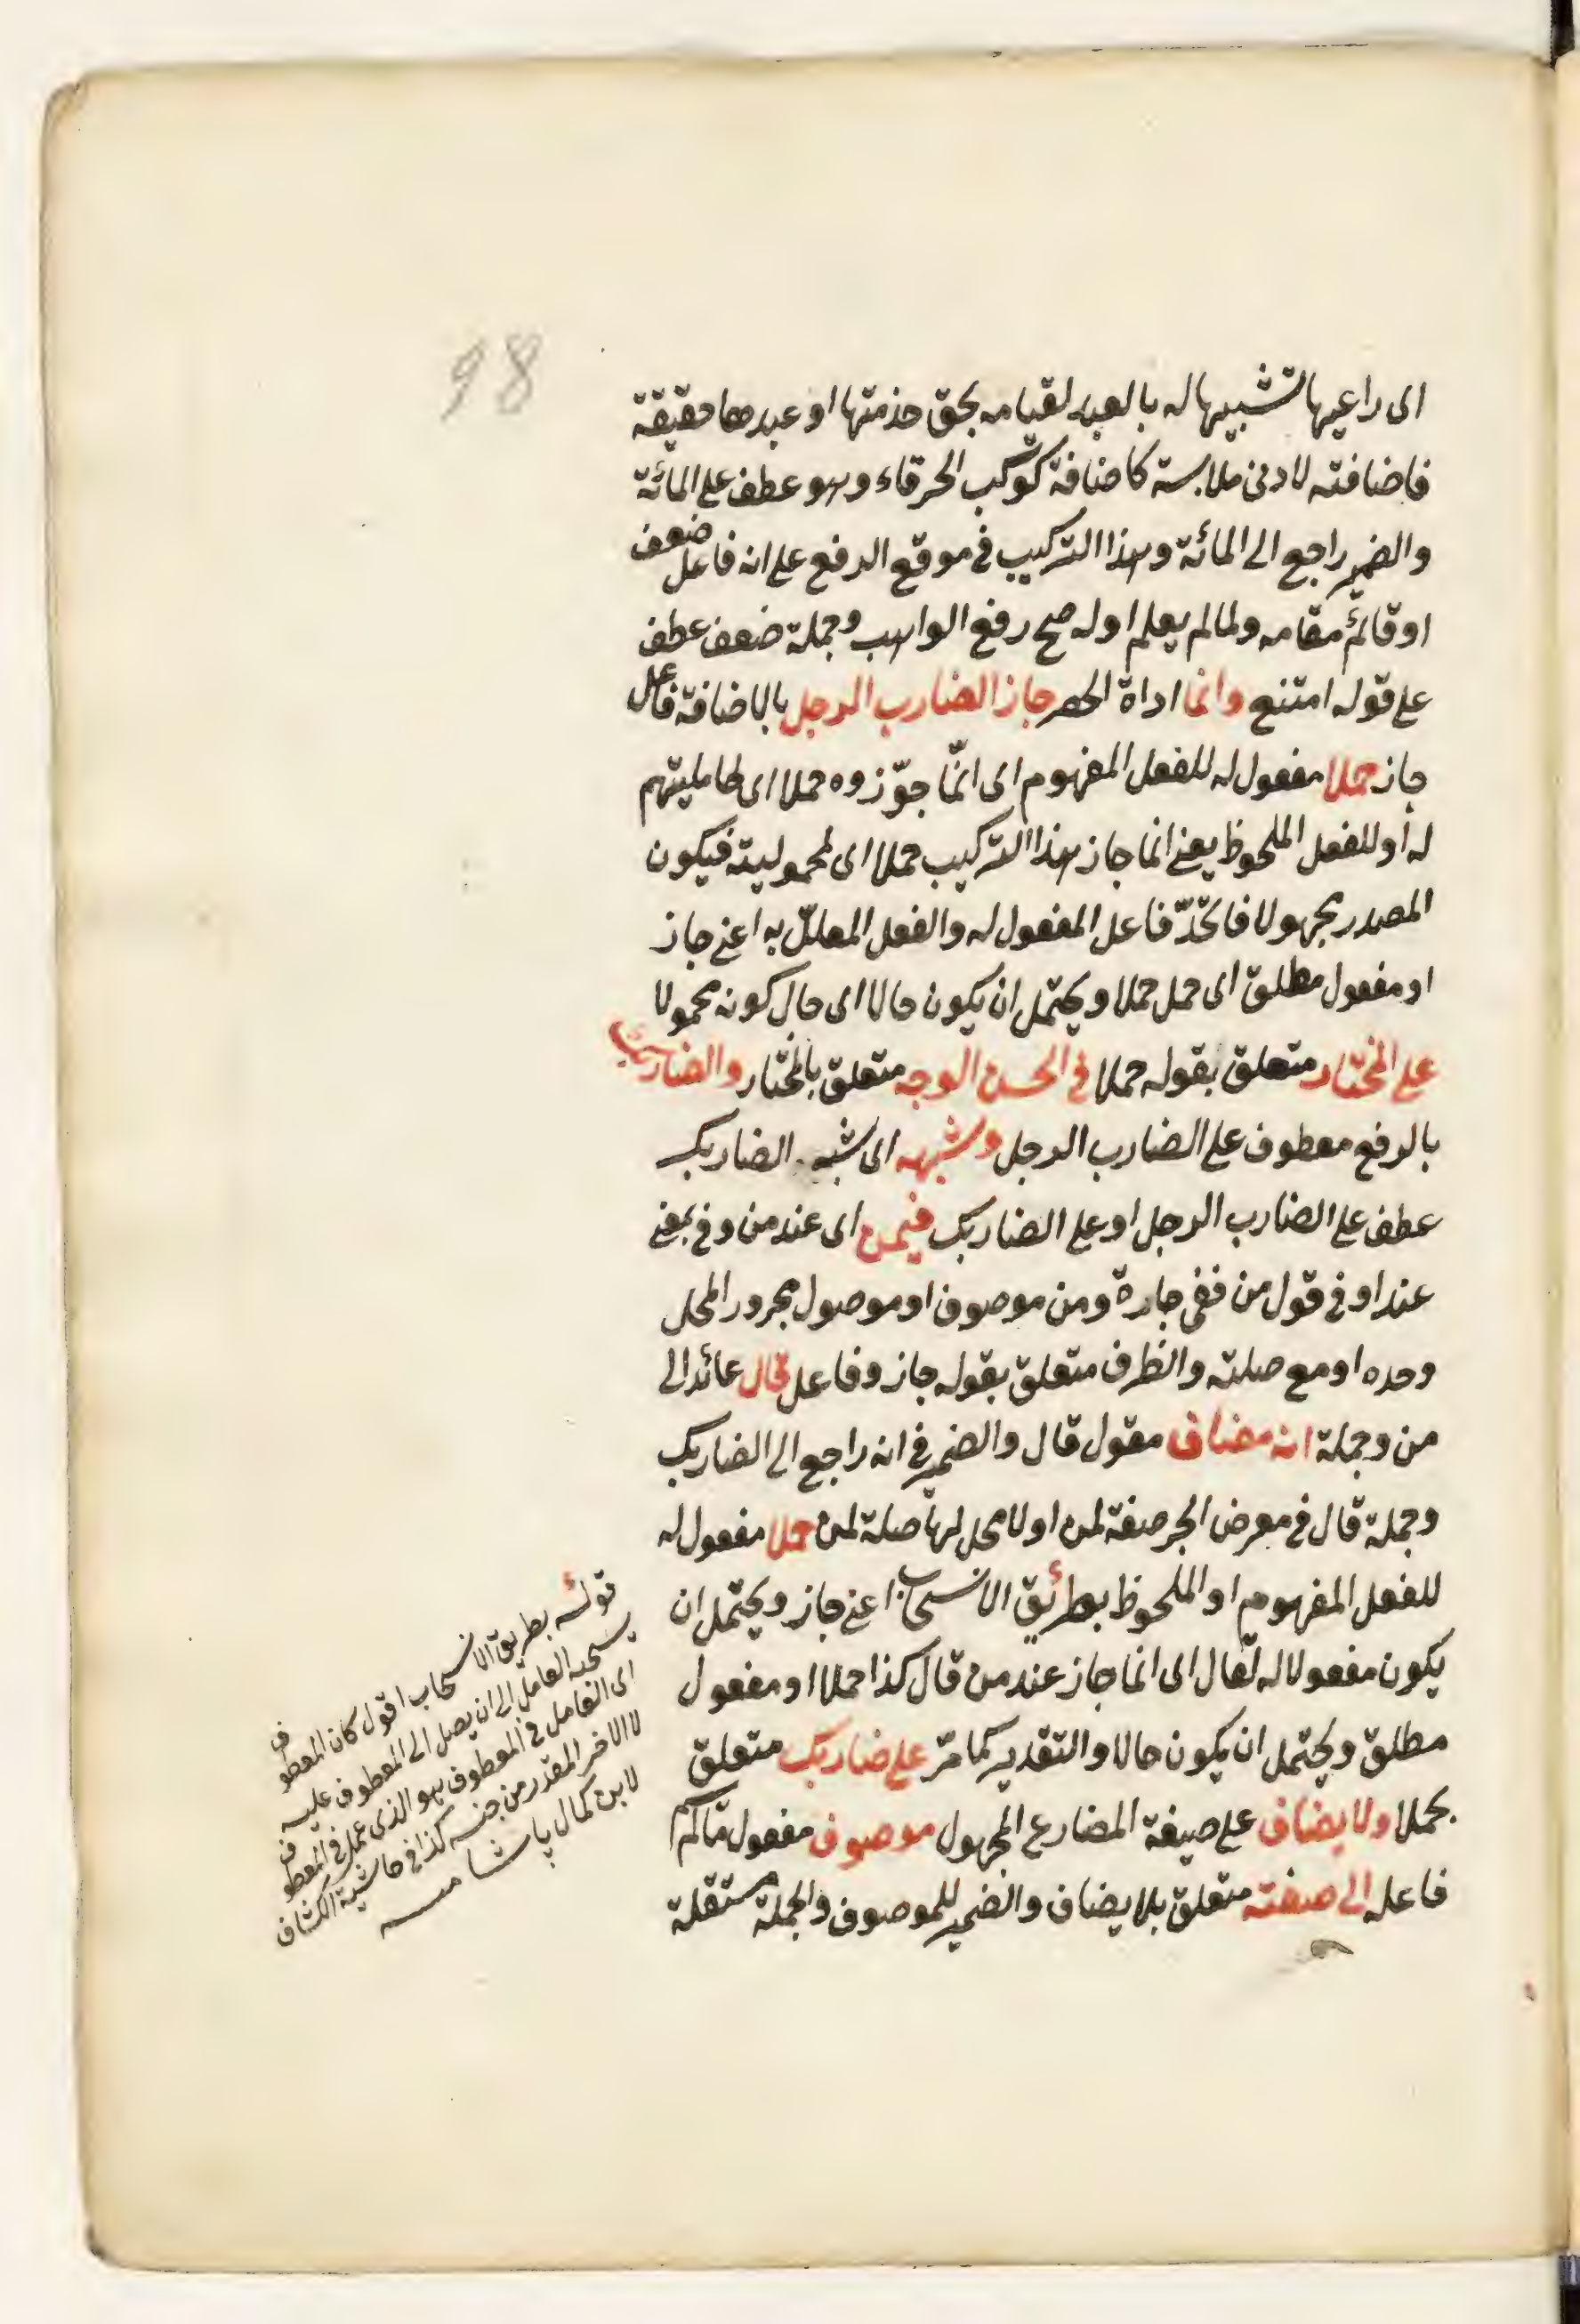 98
اى راعيها تشبيها له بالعبد لقيامه بحق خدمتها او عبدها حقيقة
فاضافته لادنى ملابسة كاضافة كوكب الخرقاء وهو عطف على المائة
والضمير راجع الى المائة وهذا التركيب فى موقع الرفع على انه فاعل ضعف
او قائم مقامه ولما لم يعلم اوله صح رفع الواهب وجملة ضعف عطف
على قوله امتنع وانما اداة الحصر جاز الضارب الرجل بالاضافة فاعل
جاز حملا مفعول له للفعل المفهوم اى انّما جوّزوه حملا اى لحامليتهم
له او للفعل الملحوظ يعنى انما جاز هذا التركيب حملا اى لمحموليته فيكون
المصدر مجهولا فاتحدّ فاعل المفعول له والفعل المعلّل به اعنى جاز
او مفعول مطلق اى حمل حملا ويحتمل ان يكون حالا اى حال كونه محمولا
على المختار متعلق بقوله حملا فى الحسن الوجه متعلق بالمختار والضاربك
بالرفع معطوف على الضارب الرجل وشبهه اى شبه الضاربك
عطف على الضارب الرجل او على الضاربك فيمن اى عند من وفى بمعنى
عند او فى قول من ففى جارة ومن موصوف او موصول مجرور المحل
وحده او مع صلته والظرف متعلق بقوله جاز وفاعل قال عائد الى
من وجملة انه مضاف مقول قال والضمير فى انه راجع الى الضاربك
وجملة قال فى معرض الجر صفة لمن او لا محل لها صلة لمن حملا مفعول له
للفعل المفهوم او الملحوظ بطريق الانسحاب اعنى جاز ويحتمل ان
يكون مفعولا له لقال اى انما جاز عند من قال كذا حملا او مفعول
مطلق ويحتمل ان يكون حالا والتقدير كما مرّ على ضاربك متعلق
بحملا ولا يضاف على صيغة المضارع المجهول موصوف مفعول مّا لم
فاعله الى صفته متعلق بلا يضاف والضمير للموصوف والجملة مستقلة
قوله بطريق الانسحاب اقول كان المعطوف
يسحبه العامل الى ان يصل الى المعطوف عليه
اى العامل فى المعطوف هو الذى عمل فى المعطوف
لا الاخر المقدر من جنسه كذا فى حاشية الكشاف
لابن كمال پاشا